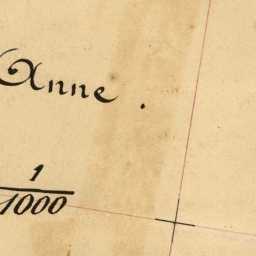 Anne.
1
1000